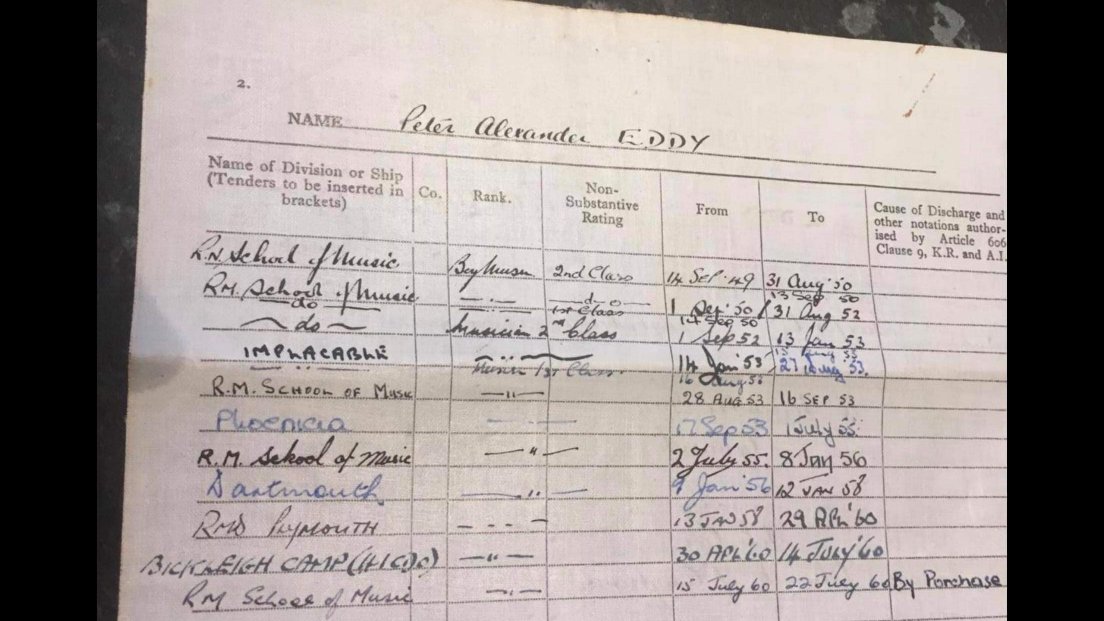 2.
NAME Peter Alexander EDDY
Name of Division or Ship
(Tenders to be inserted in
brackets)
Co.
Rank.
Non-
Substantive
Rating
From
To
Cause of Discharge and
other notations author-
ised by Article 606
Clause 9, K.R. and A.I.
R.N. School of Music Boy Musn 2nd Class 14 Sep. 49 31 Aug '50
13 Sep 50
R.M. School of Music - . - d - o 1 Sep' 50 31 Aug 52
do 1st Class 14 Sep 50
do Musician 2nd Class 1 Sep 52 13 Jan 53
IMPLACABLE 14 Jan '53 27 Aug 53.
Musn 1st Class.
R.M. SCHOOL OF MUSIC — " — 28 AUG 53 16 SEP 53
Phoenicia 17 Sep 53 1 July 55
R.M. School of Music — " — 2 July 55. 8 Jan 56
Dartmouth — " — 9 Jan '56 12 JAN 58
RMB PLYMOUTH - - - 13 JAN 58 29 APL '60
BICKLEIGH CAMP — " — 30 APL '60 14 July '60
RM School of Music — " — 15 July 60 22 July 60 By Purchase